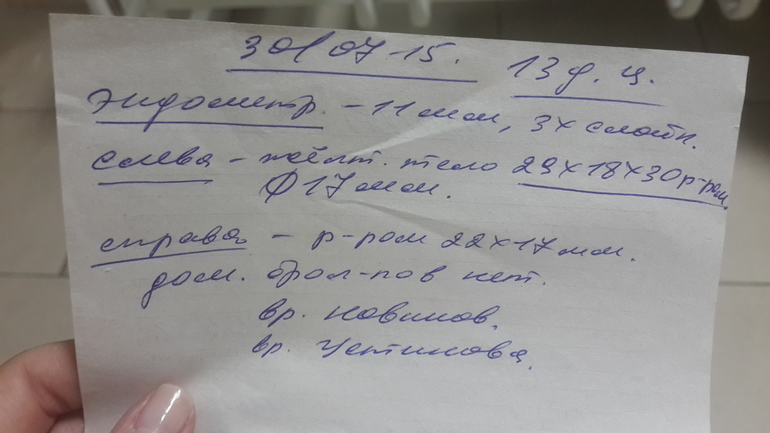 30/07-15. 13 д. ц.
Эндометр. - 11 мм, 3х слойн.
слева - жёлт. тело 29х18х30 р-ром.
Ø 17 мм.
справа - р-ром 22х17 мм.
дом. фол-лов нет.
вр. Новиков.
вр. Устинова.